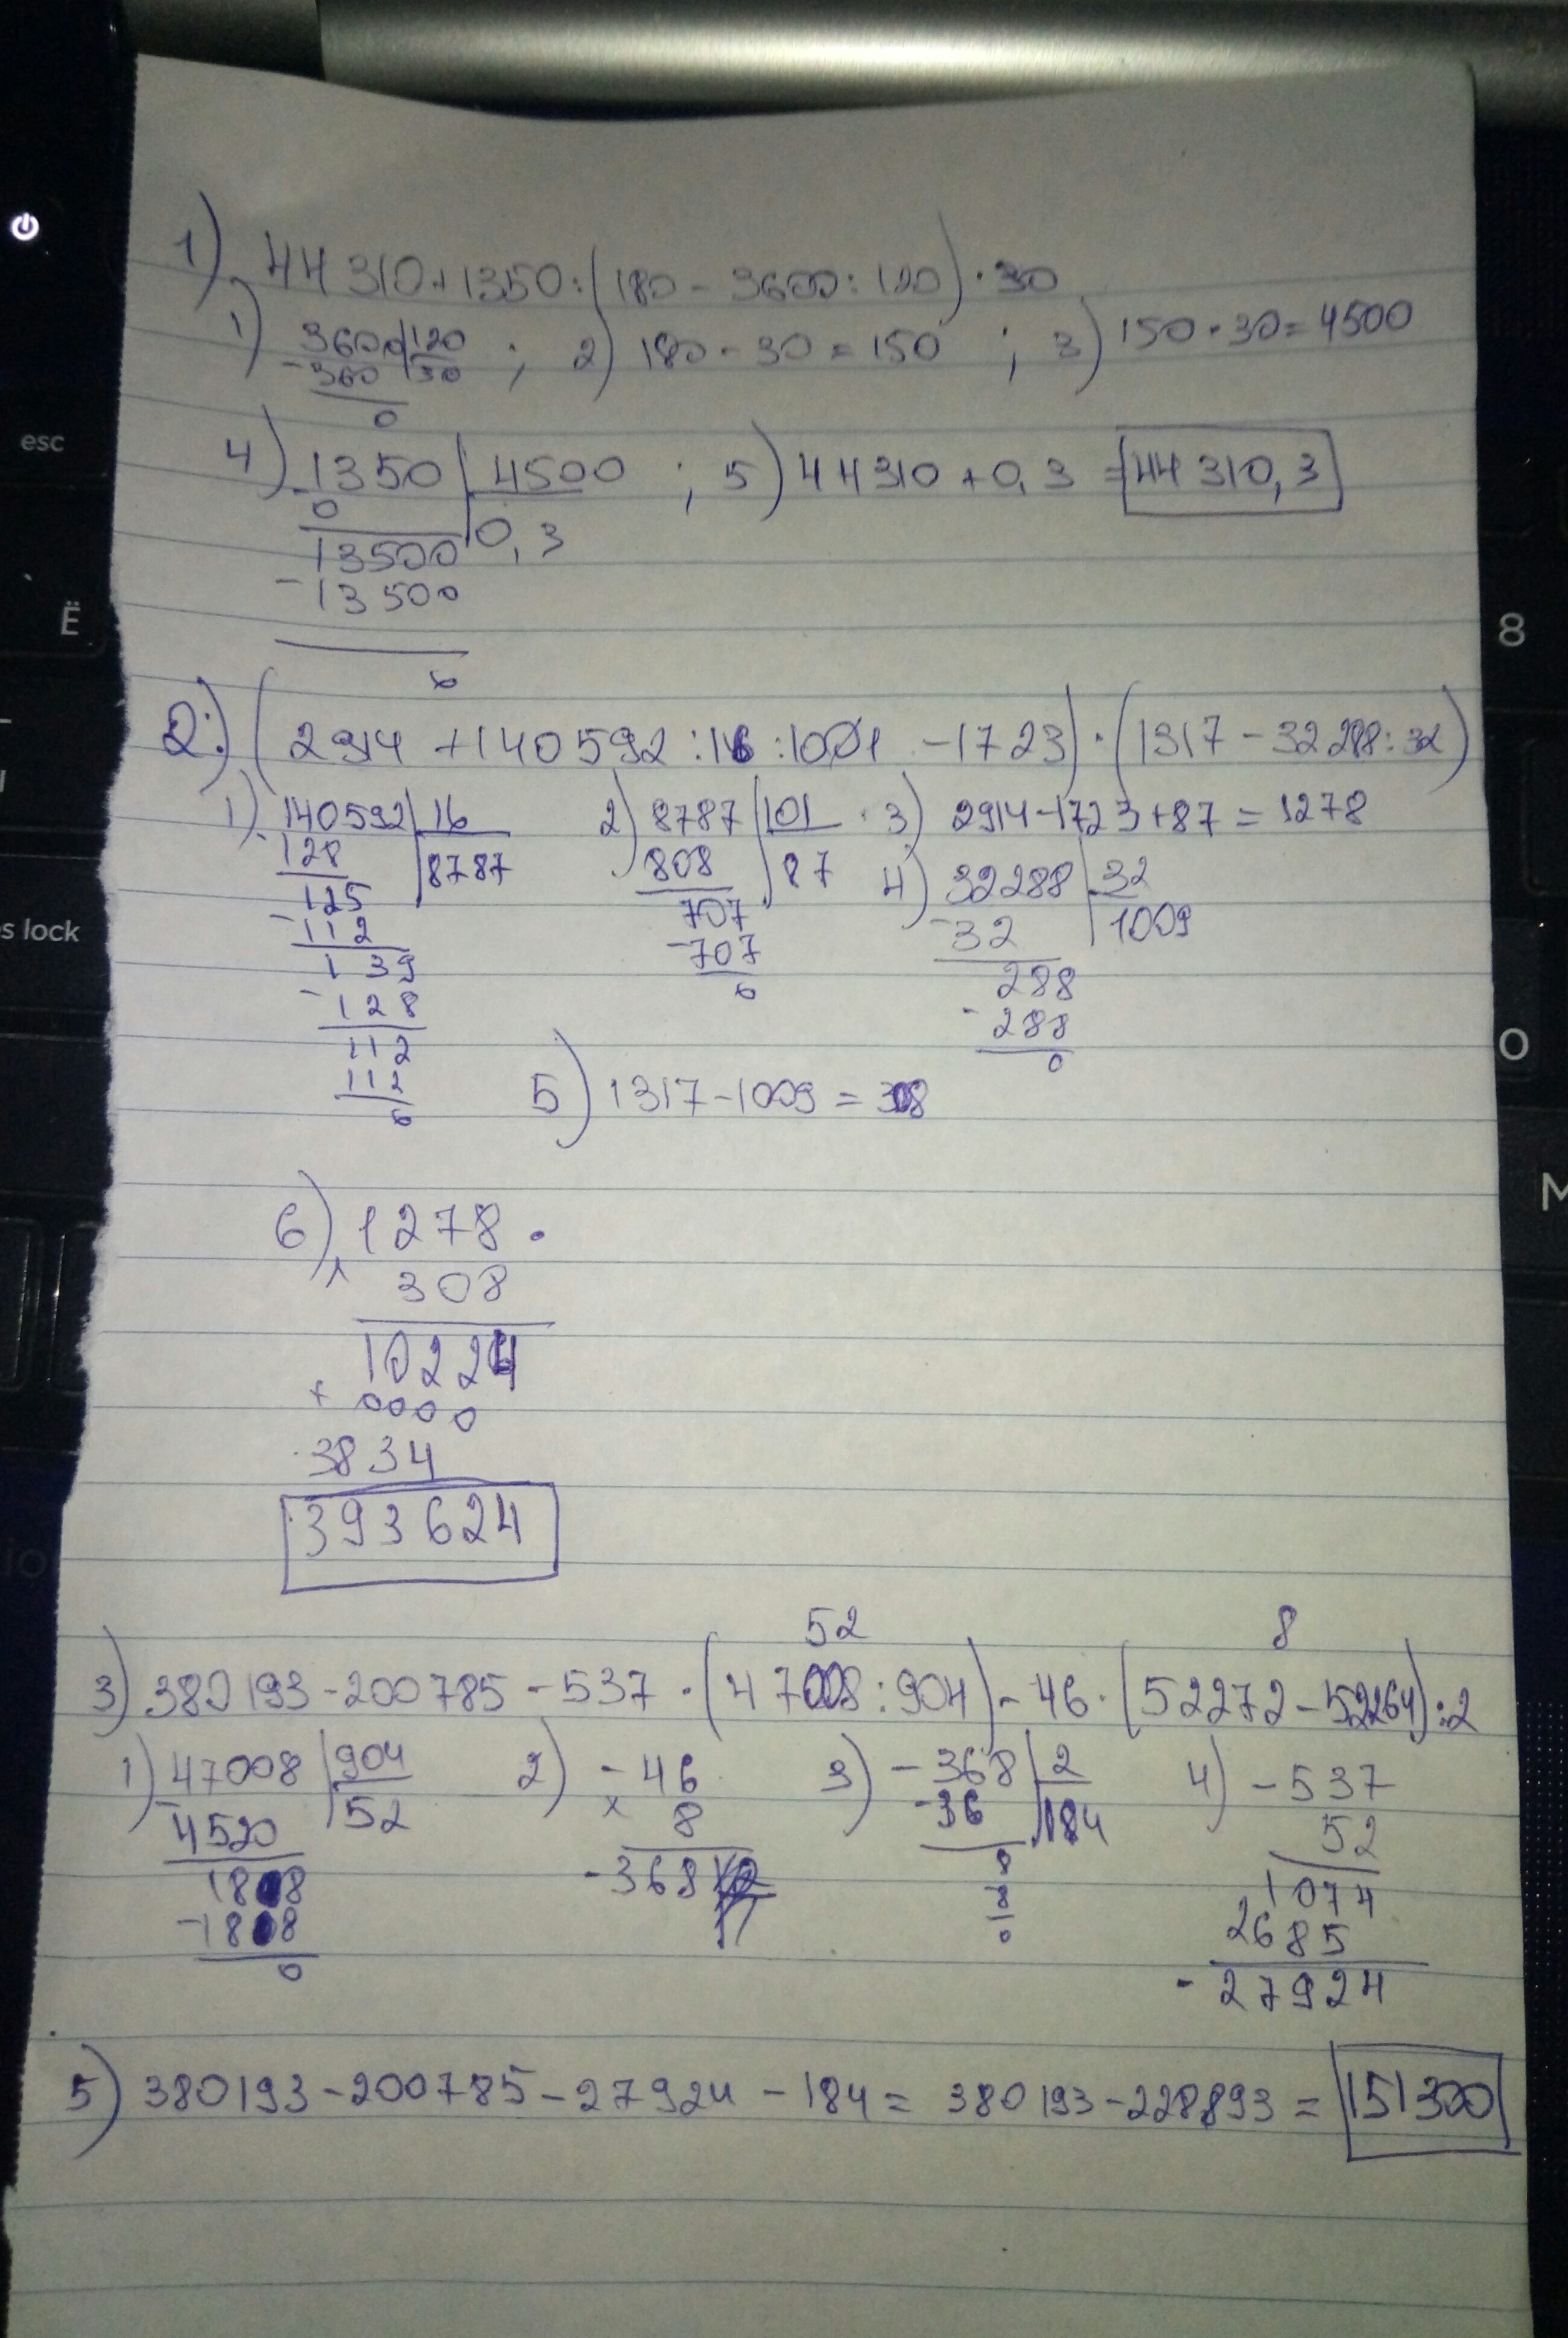 1) 44310+1350:(180-3600:120)·30
1) 3600|120 ; 2) 180-30=150 ; 3) 150·30=4500
-360 |30
0
esc
4) 1350|4500 ; 5) 44310+0,3 =44310,3
-0
0,3
13500
-13500
Ё
8
0
2.) (2914+140592:16:101-1723)·(1317-32288:32)
1) 140592|16 2) 8787|101 3) 2914-1723+87=1278
-128 |8787 808 |87 4) 32288|32
125 707 -32 |1009
s lock
-112 -707
139 0 288
-128 -288
112 0
O
112 5) 1317-1009=308
0
M
6) 1278·
× 308
10224
+ 0000
3834
393624
52 8
3) 380193-200785-537·(47008:904)-46·(52272-52264):2
1) 47008|904 2) -46 3) -368|2 4) -537
-4520 |52 × 8 -36 |184 52
1808 -368 8 1074
-1808 8 2685
0 0 -27924
5) 380193-200785-27924-184=380193-228893=151300